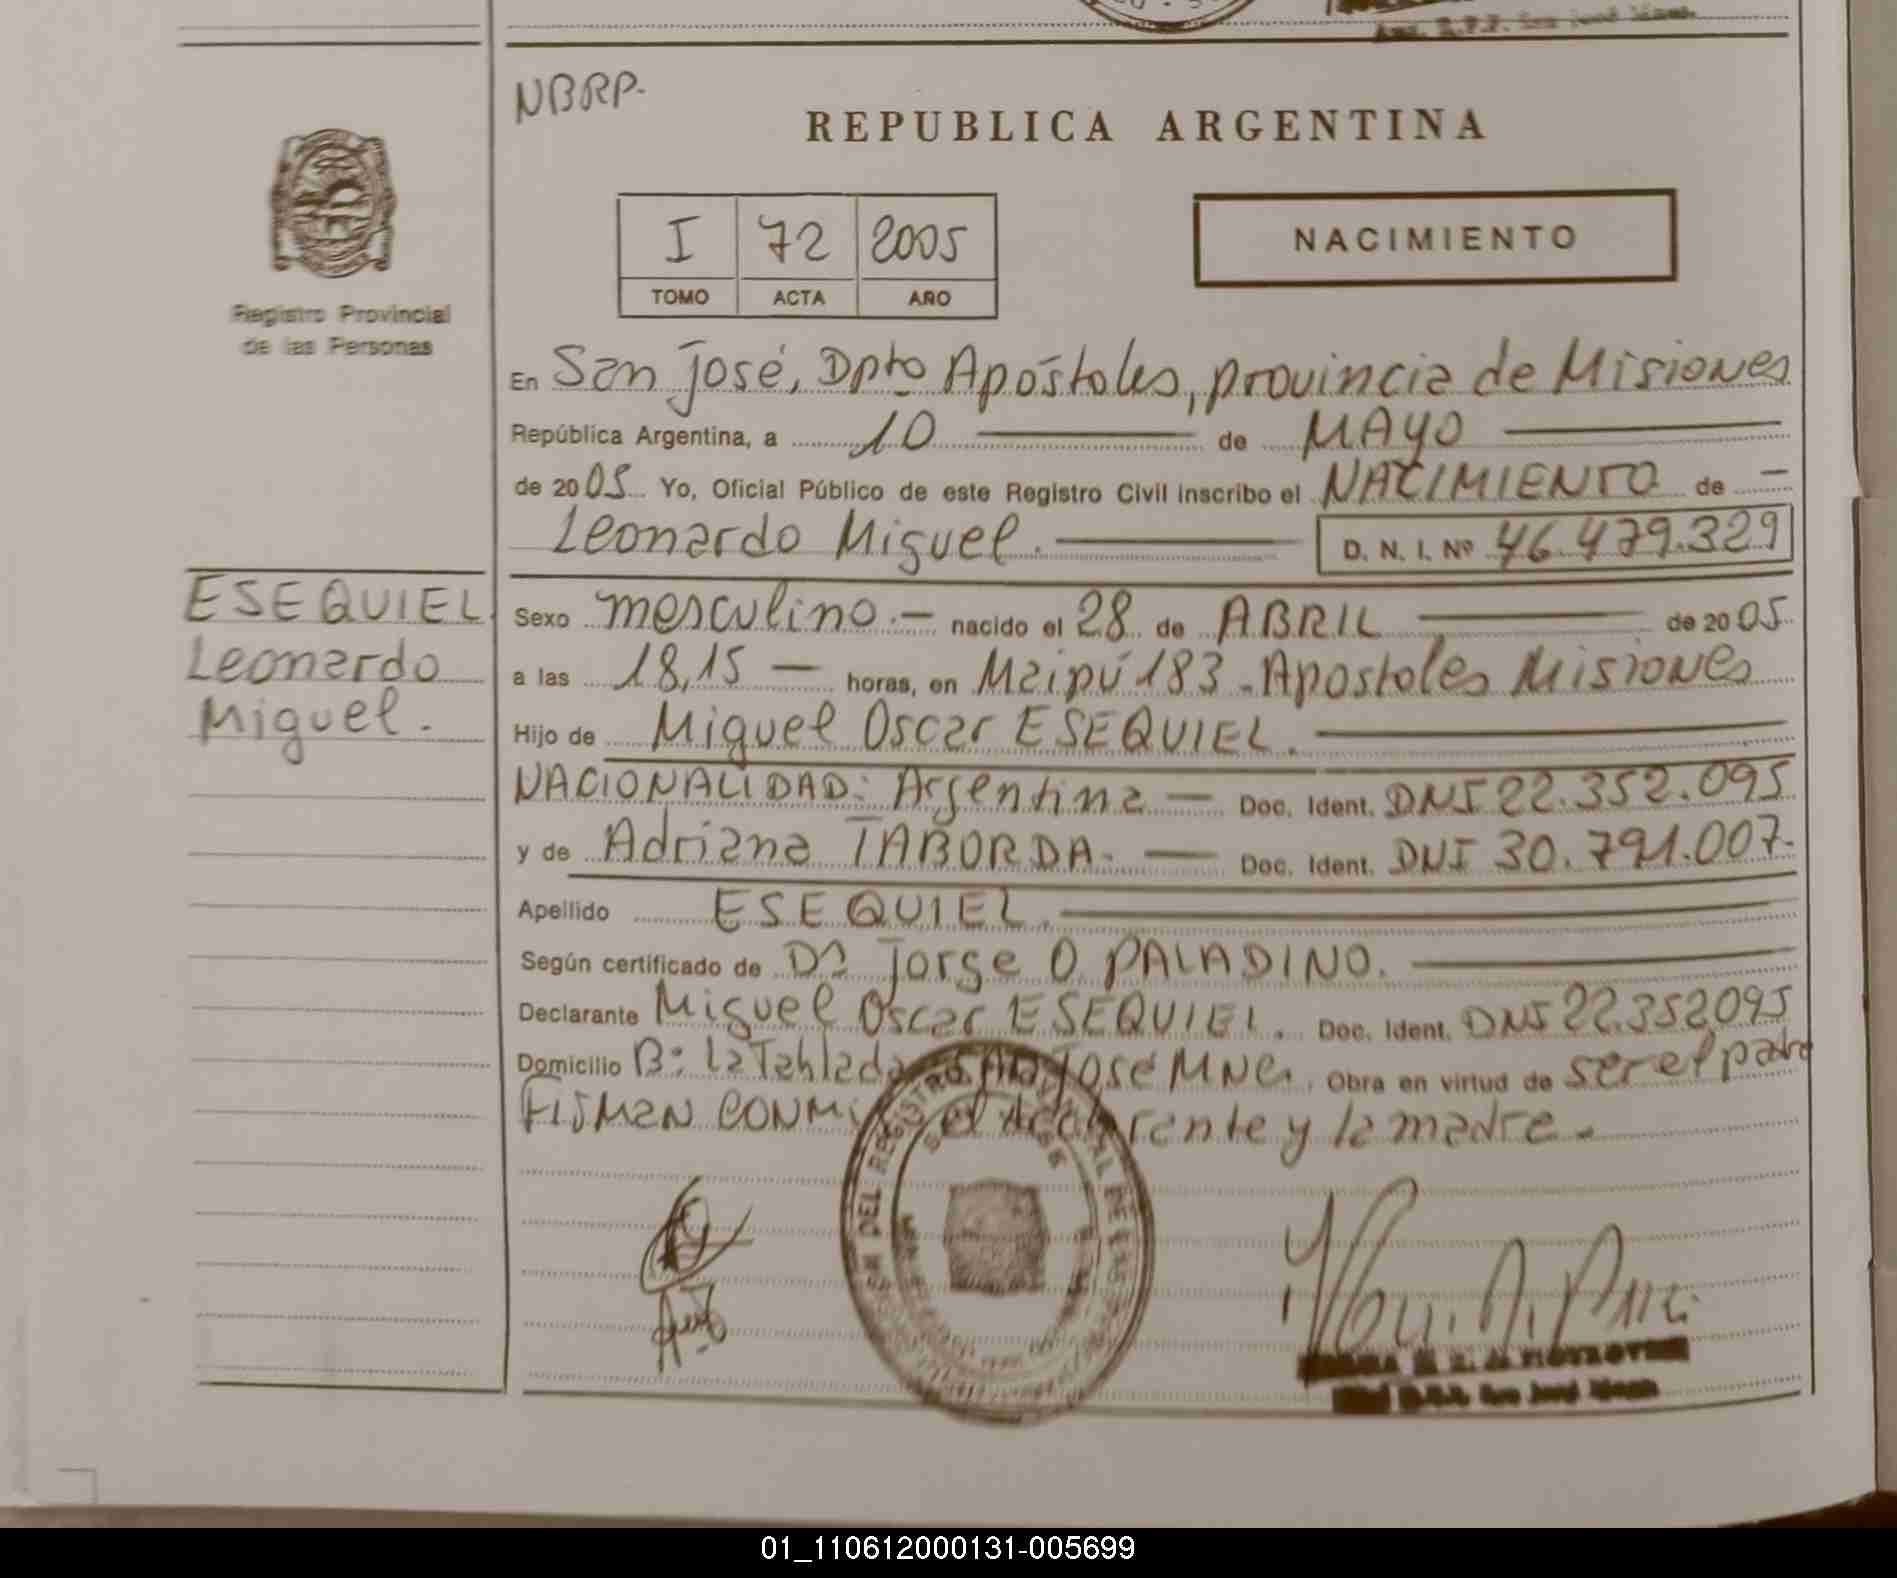 NBRP.
REPUBLICA ARGENTINA
Registro Provincial
de las Personas
I 72 2005
TOMO ACTA AÑO
NACIMIENTO
En San José, Dpto Apóstoles, provincia de Misiones
República Argentina, a 10 de MAYO
de 2005 Yo, Oficial Público de este Registro Civil inscribo el NACIMIENTO de
Leonardo Miguel. D. N. I. Nº 46.479.329
ESEQUIEL
Leonardo
Miguel.
Sexo masculino.- nacido el 28 de ABRIL de 2005
a las 18,15 — horas, en Maipú 183 - Apostoles Misiones
Hijo de Miguel Oscar ESEQUIEL.
NACIONALIDAD: Argentina — Doc. Ident. DNI 22.352.095
y de Adriana TABORDA. — Doc. Ident. DNI 30.791.007.
Apellido ESEQUIEL.
Según certificado de Dr Jorge O PALADINO.
Declarante Miguel Oscar ESEQUIEL. Doc. Ident. DNI 22.352095
Domicilio B: La Tablada San José Mnes. Obra en virtud de ser el padre
FIRMAN CONMIGO el declarante y la madre.
DEL REGISTRO
01_110612000131-005699